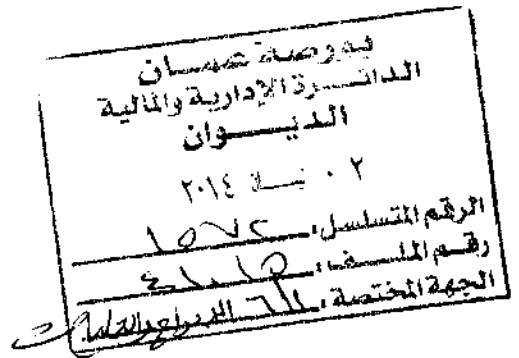 بورصة عمان
الدائرة الإدارية والمالية
الديوان
٠٢ نيسان ٢٠١٤
الرقم المتسلسل: ١٥٧٢
رقم الملف:
الجهة المختصة: